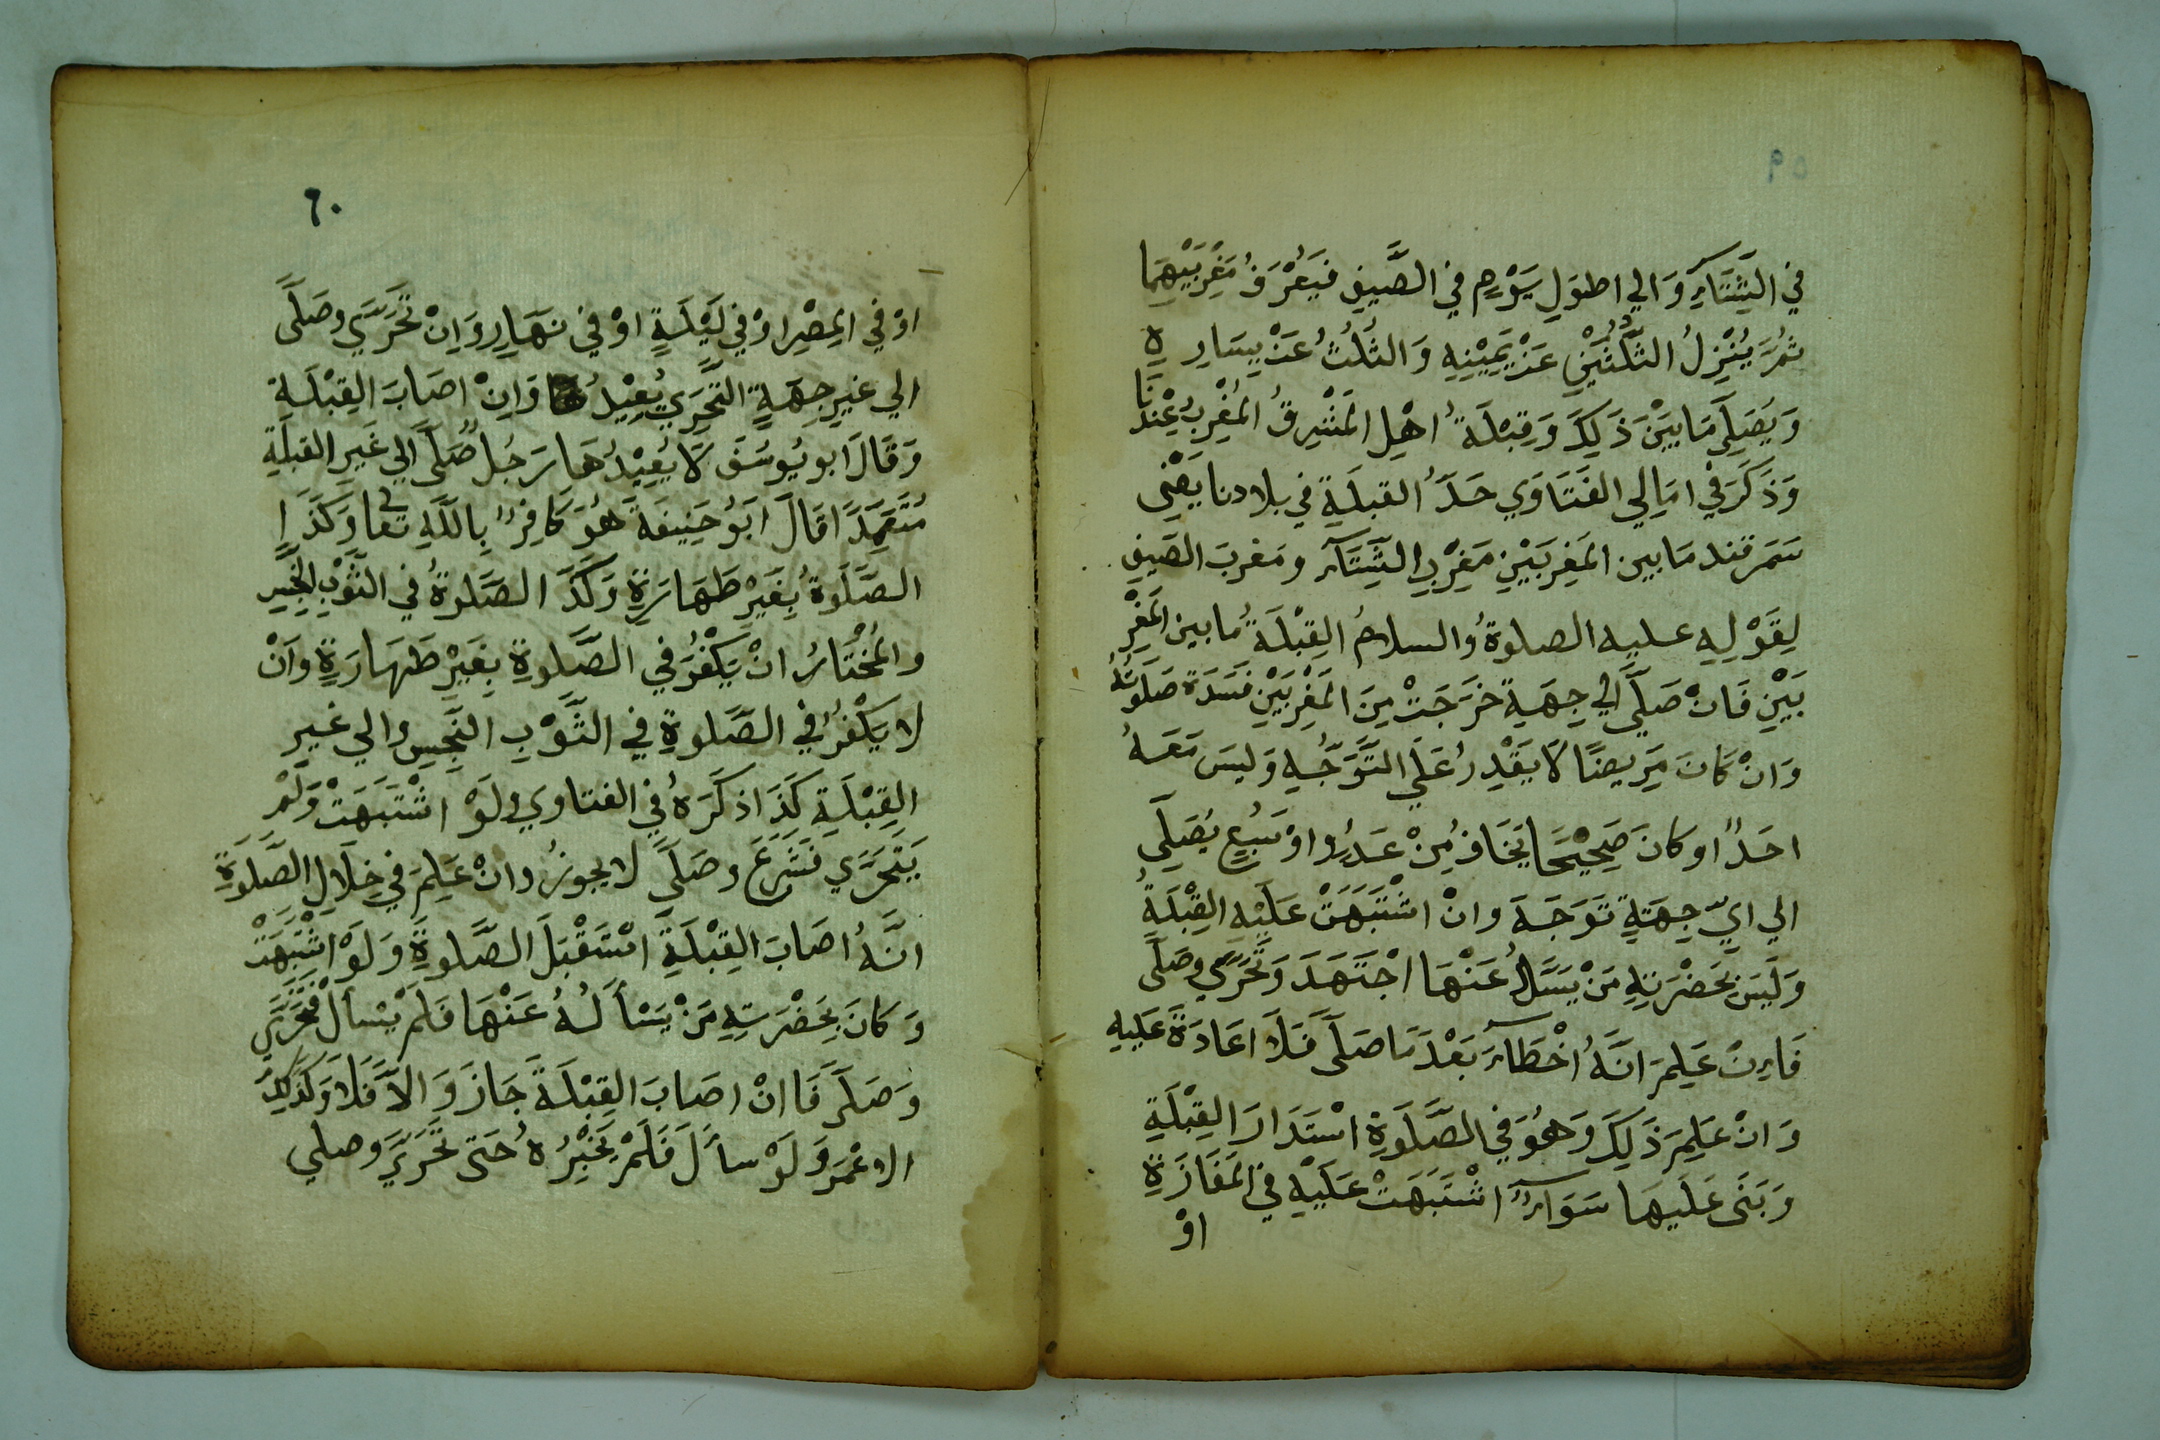 ٥٩
في الشِّتَآءِ وَالي اطوَلِ يَوْمٍ في الصَّيفِ فيَعْرَفُ مَغْرِبَيْهِمَا
ثمَّ يُنْزِلُ الثُّلُثَيْنِ عَنْ يَمِيْنِهِ وَالثُلُثُ عَنْ يِسَارِهِ
وَيُصَلِي مَا بَيْنَ ذَلِكَ وَقِبْلَةُ اهْلِ المَشْرِقُ المَغْرِبُ عِنْدنَا
وَذَكَرَ في امَالِي الفَتَاوَي حَدَّ القبلَةِ في بلادنا يَعْنِي
سَمَرقند مَا بين المَغِربَيْنِ مَغْرِبِ الشِّتَآءِ ومَغربَ الصَيفِ
لِقَوْلِهِ عليه الصلوةُ والسلامُ القِبْلَةُ ما بين المَغْرِ
بَيْنِ فَانْ صَلَّي الي جِهَةٍ خَرَجَتْ مِنَ المَغْرِبَيْنِ فَسَدَة صَلَوتُهُ
وَانْ كَانَ مَرِيضًا لَا يَقْدِرُ عَلَي التَّوَجُّهِ وَليسَ مَعَهُ
احَدٌ او كانَ صَحِيْحًا يَخَافُ مِنْ عَدُوٍ اوْ سَبُعٍ يُصَلِي
الي ايِّ جِهَةٍ تَوَجَهَ وانْ اشْتَبَهَتْ عَلَيْهِ القِبْلَةُ
وَلَيسَ بَحَضْرَتِهِ مَنْ يَسَّلُ عَنْهَا اجْتَهَدَ وَتَحَرَّي وصَلَّى
فَاءِنْ عَلِمَ انَّهُ اخْطَآءَ بَعْدَ مَا صَلَّى فَلَا اعَادَةَ عَلَيهِ
وَانْ عَلِمَ ذَلِكَ وَهُوَ في الصَّلَوةِ اسْتَدَارَ القِبْلَةِ
وَبَنَى عَلَيهَا سَوَآءٌ اشْتَبَهَتْ عَلَيْهِ في المَفَازَةِ
اوْ
٦٠
اوْ في المِصْرِ اوْ في لَيْلَةٍ اوْ في نهَارِ وَاِنْ تَحَرَّي وصَلَّى
الي غيرِ جِهَةِ التَّحَرِّي يُعِيْدُهَا وَاِنْ اصَابَ القِبْلَةِ
وَقَالَ ابو يُوسُفَ لَا يُعِيْدُهَا رَجُلٌ صَلَّي الي غَيرِ القبلَةِ
مُتَعَمِّدًا قَالَ ابَوُ حَنِيفَةَ هُوَ كَافِرٌ بِاللَّهِ تعالي وَكَذَا
الصَّلَوةُ بِغَيْرِ طَهَارَةٍ وَكَذَ الصَّلوةُ في الثَّوْبِ النَّجِسِ
والمُخْتَارُ انْ يَكْفُرَ في الصَّلوةِ بِغَيْرِ طَهَارَةٍ وَانْ
لا يَكْفُرُ في الصَّلوةِ في الثَّوْبِ النَّجِسِ والي غيرِ
القِبْلَةِ كَذَا ذكَرَهُ في الفتاوي ولَوْ اشْتَبَهَتْ وَلَمْ
يَتَحَرَّي فَشَرَعَ وصَلَّى لا يجوزُ وانْ عَلِمَ في خِلَالِ الصَّلَوةِ
انَّهُ اصَابَ القِبْلَةِ اسْتَقْبَلَ الصَّلوةِ وَلَوْ اشْتَبَهَتْ
وَكانَ بِحَضْرَتِهِ مَنْ يَسْأَلُهُ عَنْهَا فَلَمْ يَسْألْ فَتَحَرَّي
وَصَلَّى فَاانْ اصَابَ القِبْلَةَ جَازَ وَالاَّ فَلَا وَكَذَلِكَ
الاعْمَى وَلَوْ سأَلَ فَلَمْ يُخْبِرُهُ حَتى تَحَرَّيَ وصلي